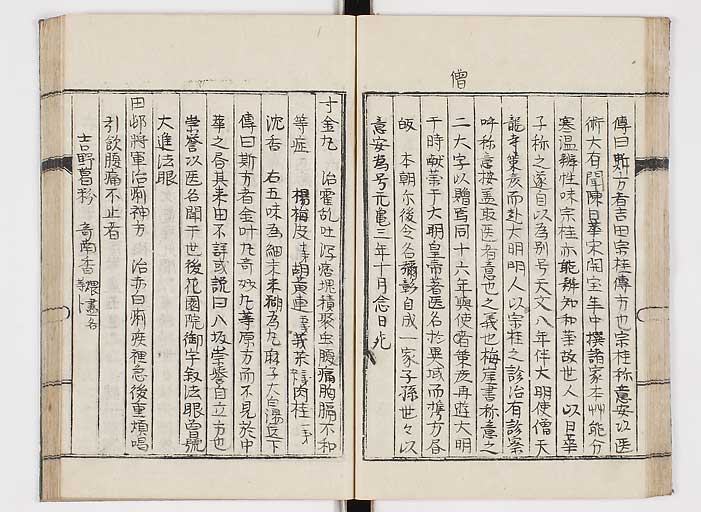 僧
傳曰斯方者吉田宗桂傳方也宗桂称意安以医
術大有聞陳日華宋開宝年中撰諸家本艸能分
寒温辨性味宗桂亦能辨知和華故世人以日華
子称之遂自以為別号天文八年伴大明使僧天
龍寺策彦而赴大明明人以宗桂之診治有診案
呼称意樓盖取医者意也之義也梅崖書称意之
二大字以贈焉同十六年與使者策彦再遊大明
于時献薬于大明皇帝著医名於異域而携方呂
皈本朝尔後令名彌彰自成一家子孫世々以
意安為号元亀三年十月念日化
寸金丸 治霍乱吐泻痞塊積聚虫腹痛胸膈不和
等症 楊梅皮 胡黄連 莪朮 肉桂
沉香 右五味為細末米糊為丸麻子大白湯送下
傳曰斯方者金叶丸奇妙丸等原方而不見於中
華之居其来由不詳或説曰八坂崇誉自立方也
崇誉以医名聞于世後花園院御宇叙法眼号
大進法眼
田邨將軍治痢神方 治赤白痢疾裡急後重煩喝
引飲腹痛不止者
吉野葛粉 奇南香